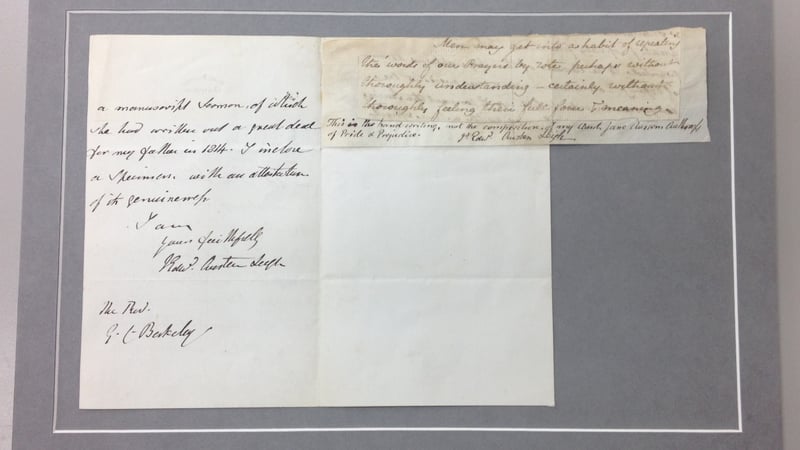 a manuscript Sermon, of which
she had written out a great deal
for my father in 1814. I inclose
a Specimen, with an attestation
of its genuineness
I am
yours faithfully
J Edwd. Austen Leigh
The Rev.
G. C. Berkeley
Men may get into a habit of repeating
the words of our Prayers by rote, perhaps without
thoroughly understanding - certainly without
thoroughly feeling their full force & meaning.
This is the hand writing, not the composition, of my Aunt, Jane Austen Authoress
of Pride & Prejudice. Js Edwd. Austen Leigh